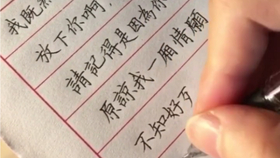 我既
放下你啊，
請記得是因為你
原諒我一廂情願
不知好歹